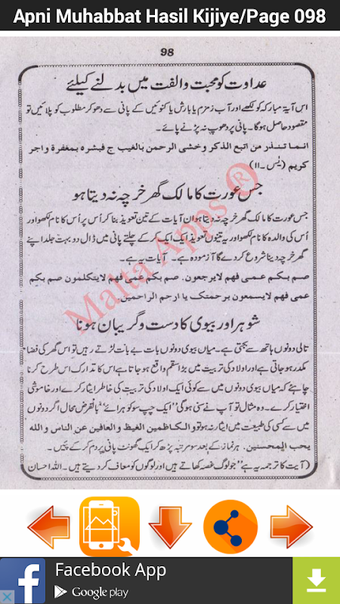 Apni Muhabbat Hasil Kijiye/Page 098
98
عداوت کو محبت و الفت میں بدلنے کیلئے
اس آیۃ مبارکہ کو لکھے اور آب زمزم یا بارش یا کنوئیں کے پانی سے دھو کر مطلوب کو پلائیں تو
مقصود حاصل ہوگا۔ پانی پر دھوپ نہ پڑنے پائے۔
انما تنذر من اتبع الذکر وخشی الرحمن بالغیب ج فبشرہ بمغفرة واجر
کریم (یٰس۔۱۱)
جس عورت کا مالک گھر خرچہ نہ دیتا ہو
جس عورت کا مالک گھر خرچہ نہ دیتا ہو ان آیات کے تین تعویذ بنا کر اس پر اُس کا نام لکھو اور
اُس کی والدہ کا نام لکھو اور یہ تینوں تعویذ ایک ایک کر کے چلتے پانی میں ڈال دو بہت جلد اپنے
گھر خرچہ دینا شروع کر دے گا آزمودہ ہے۔ آیات یہ ہے۔
صم بکم عمی فهم لایرجعون۔ صم بکم عمی فهم لایتکلمون صم بکم
عمی فهم لایسمعون برحمتک یا ارحم الراحمین۔
شوہر اور بیوی کا دست و گریباں ہونا
تالی دونوں ہاتھ سے بجتی ہے۔ میاں بیوی دونوں بات بے بات لڑتے رہیں تو اس گھر کی فضا
مکدر ہو جاتی ہے اور اولاد کی تربیت میں بڑا ستم واقع ہو جاتا ہے اس کا تدارک اس طرح کرنا
چاہئے کہ میاں بیوی دونوں میں سے کوئی ایک اولاد کی تربیت کی خاطر ایثار کرے اور خاموشی
اختیار کرے۔ وہ مثال تو آپ نے سنی ہوگی "ایک چپ سو کو ہرائے" بالفرض محال اگر دونوں
میں سے کسی کی طبیعت میں ایثار نہ ہو تو والکاظمین الغیظ والعافین عن الناس والله
یحب المحسنین۔ ہر نماز کے بعد سو مرتبہ پڑھ کر ایک گھونٹ پانی پر دم کر کے پئیں۔
(آیت کا ترجمہ یہ ہے "جو لوگ غصہ کھاتے ہیں اور لوگوں کو معاف کر دیتے ہیں۔ اللہ احسان
Matta Apps ®
Facebook App
Google play